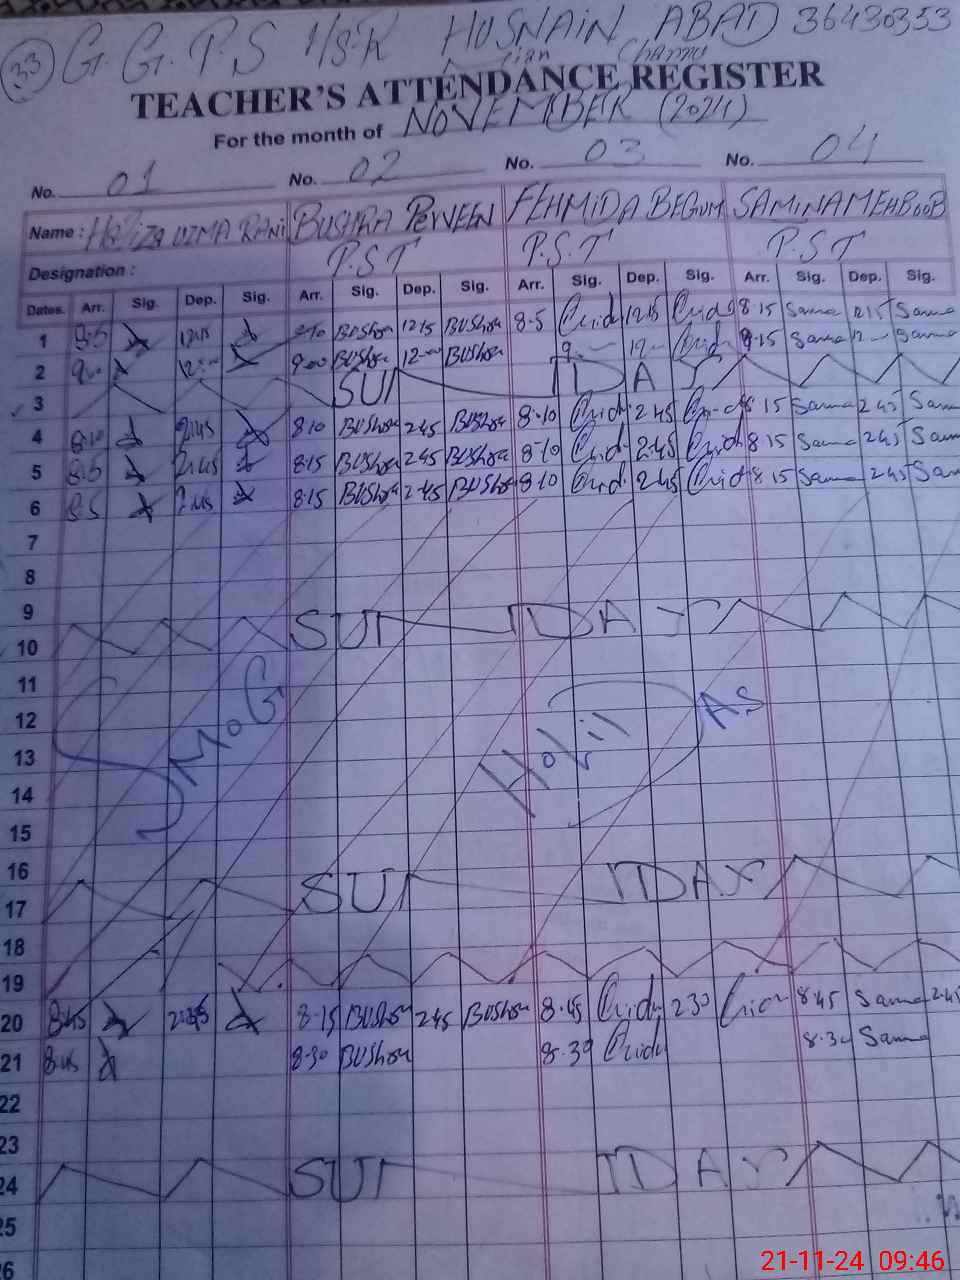 33 G.G.P.S HSR HUSNAIN ABAD 36430353
Mian Channu
TEACHER'S ATTENDANCE REGISTER
For the month of NOVEMBER (2024)
No. 01 No. 02 No. 03 No. 04
Name : UZMA RANi BUSHRA PERVEEN FEHMiDA BEGUM SAMiNA MEHBOOB
Designation : P.S.T P.S.T P.S.T
Dates. Arr. Sig. Dep. Sig. Arr. Sig. Dep. Sig. Arr. Sig. Dep. Sig. Arr. Sig. Dep. Sig.
1 8.5 1215 BUShra 1215 BUShra 8-5 1215 8.15 Samna 1215 Samna
2 9.00 BUShra 12 BUShra 9 12 9.15 Samna 12 Samna
3 SUNDAY
4 8.10 2.45 8.10 BUShra 2.45 BUShra 8.10 2.45 8.15 Samna 2.45 Samna
5 8.5 2.45 8.15 BUShra 2.45 BUShra 8.10 2.45 8.15 Samna 2.45 Samna
6 8.5 2.45 8.15 BUShra 2.45 BUShra 8.10 2.45 8.15 Samna 2.45 Sam
7
8
9
10 SUNDAY
11
12 SMOG HoliDAS
13
14
15
16
17 SUNDAY
18
19
20 8.45 2.45 8.15 BUShra 2.45 BUShra 8.45 2.30 8.45 Samna 2.45
21 8.45 8.30 BUShra 8.30 8.30 Samna
22
23
24 SUNDAY
25
26
21-11-24 09:46